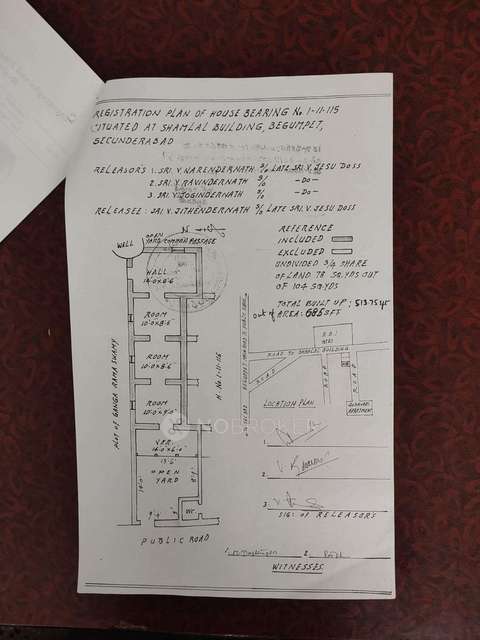 REGISTRATION PLAN OF HOUSE BEARING No 1-11-115
SITUATED AT SHAMLAL BUILDING, BEGUMPET,
SECUNDERABAD
RELEASOR'S 1. SRI. V. NARENDERNATH S/o LATE SRI. V. JESU DOSS
2. SRI. V. RAVINDERNATH S/o -Do-
3. SRI. V. JOGINDERNATH S/o -Do-
RELEASEE: SRI. V. JITHENDERNATH S/o LATE SRI. V. JESU DOSS
N
WELL
OPEN
YARD COMMON PASSAGE
HALL
ROOM
10'.0×8'.6
ROOM
10'.0×8'.6
ROOM
10'.0×9'.0
PLOT OF GANGA RAMA SWAMY
H. No 1-11-116
VER.
OPEN
YARD
WC
PUBLIC ROAD
REFERENCE
INCLUDED
EXCLUDED
UNDIVIDED 3/4 SHARE
OF LAND 78 SQ.YDS OUT
OF 104 SQ.YDS
TOTAL BUILT UP: 513.75 sft
out of AREA: 685 SFT
ROAD TO SHAMLAL BUILDING
ROAD
ROAD
ROAD
APARTMENT
LOCATION PLAN
1.
2.
3.
SIG: OF RELEASORS
1.
2.
WITNESSES
MOBROKER